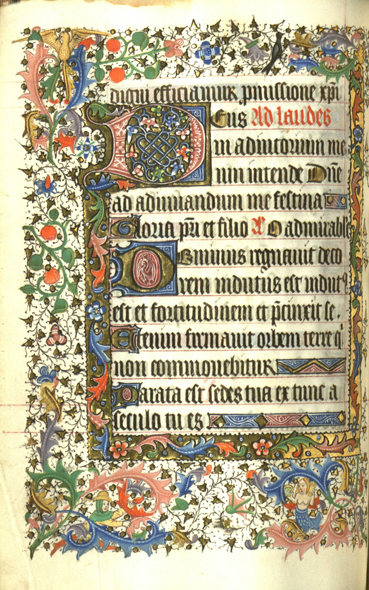 digni efficiamur pmissione xpi
Deus Ad laudes
in adiutorium me
um intende Dne
ad adiuuandum me festina
Gloria pri et filio A O admirabile
Dominus regnauit deco
rem indutus est indut
est et fortitudinem et pcinxit se.
Etenim firmauit orbem terre q
non commouebitur
Parata est sedes tua ex tunc a
seculo tu es